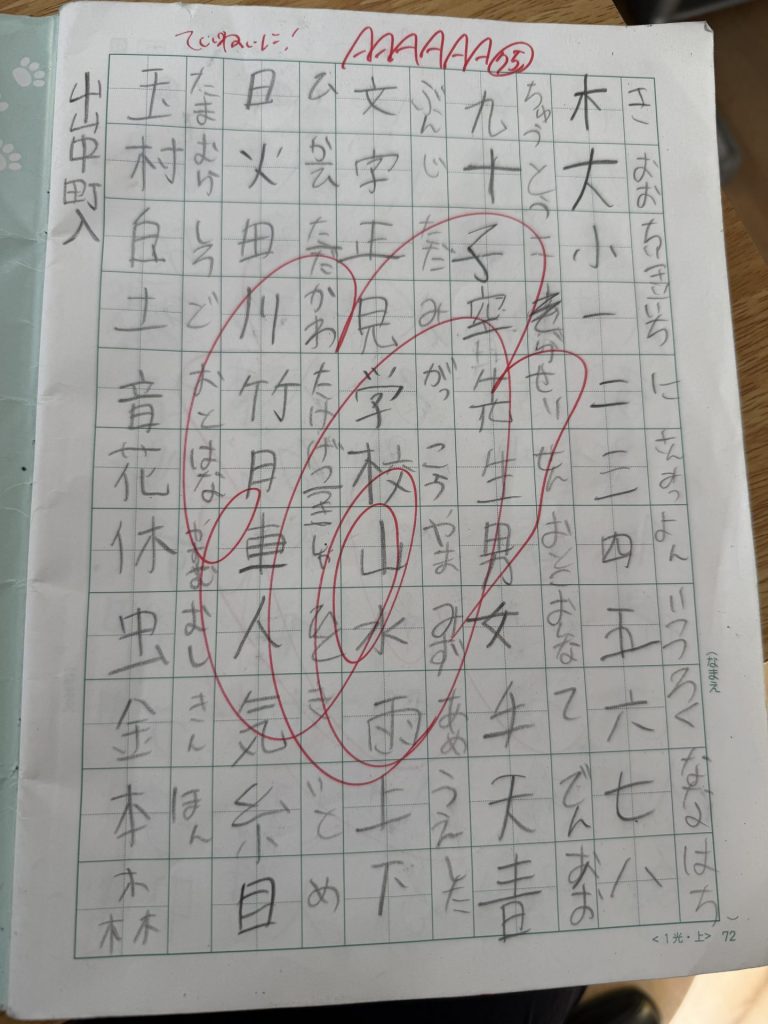 ていねいに!
AAAAAA 75
き おお ちいさい いち に さん よん いつつ ろく なな はち
木大小一二三四五六七八
ちゅう とう こ せい せん おとこ おんな て でん あお
九十子空先生男女手天青
ぶん じ ただ み がっ こう やま みず あめ うえ した
文字正見学校山水雨上下
ひ かわ たけ き いと め
日火田川竹月車人気糸目
たま むら しろ ど おと はな むし きん ほん
玉村白土音花休虫金本森
出中町入
(なまえ )
<1光・上> 72